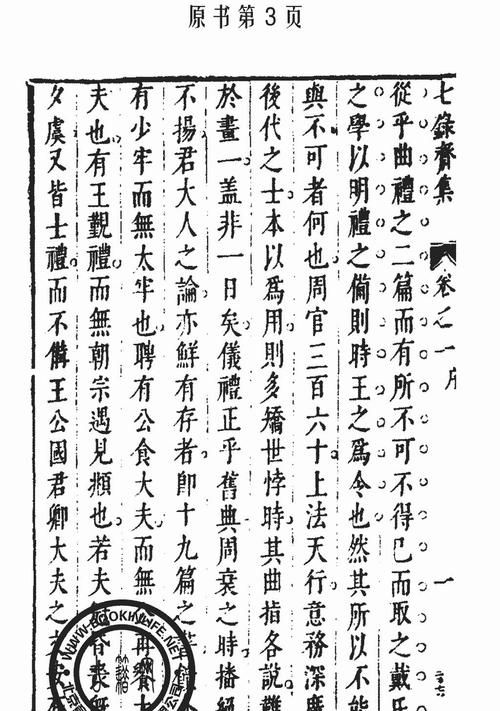 原书第3页
七錄齋集 卷之一序 一
從乎曲禮之二篇而有所不可不得已而取之戴氏
之學以明禮之備則時王之爲令也然其所以不能
與不可者何也周官三百六十上法天行意務深
後代之士本以爲用則多矯世悖時其曲指各說
於畫一蓋非一日矣儀禮正乎舊典周衰之時播絕
不揚君大人之論亦鮮有存者卽十九篇之
有少牢而無太牢也聘有公食大夫而無
夫也有王覲禮而無朝宗遇見頫也若夫
夕虞又皆士禮而不備王公國君卿大夫之
WWW.BOOKHYLIFE.NET